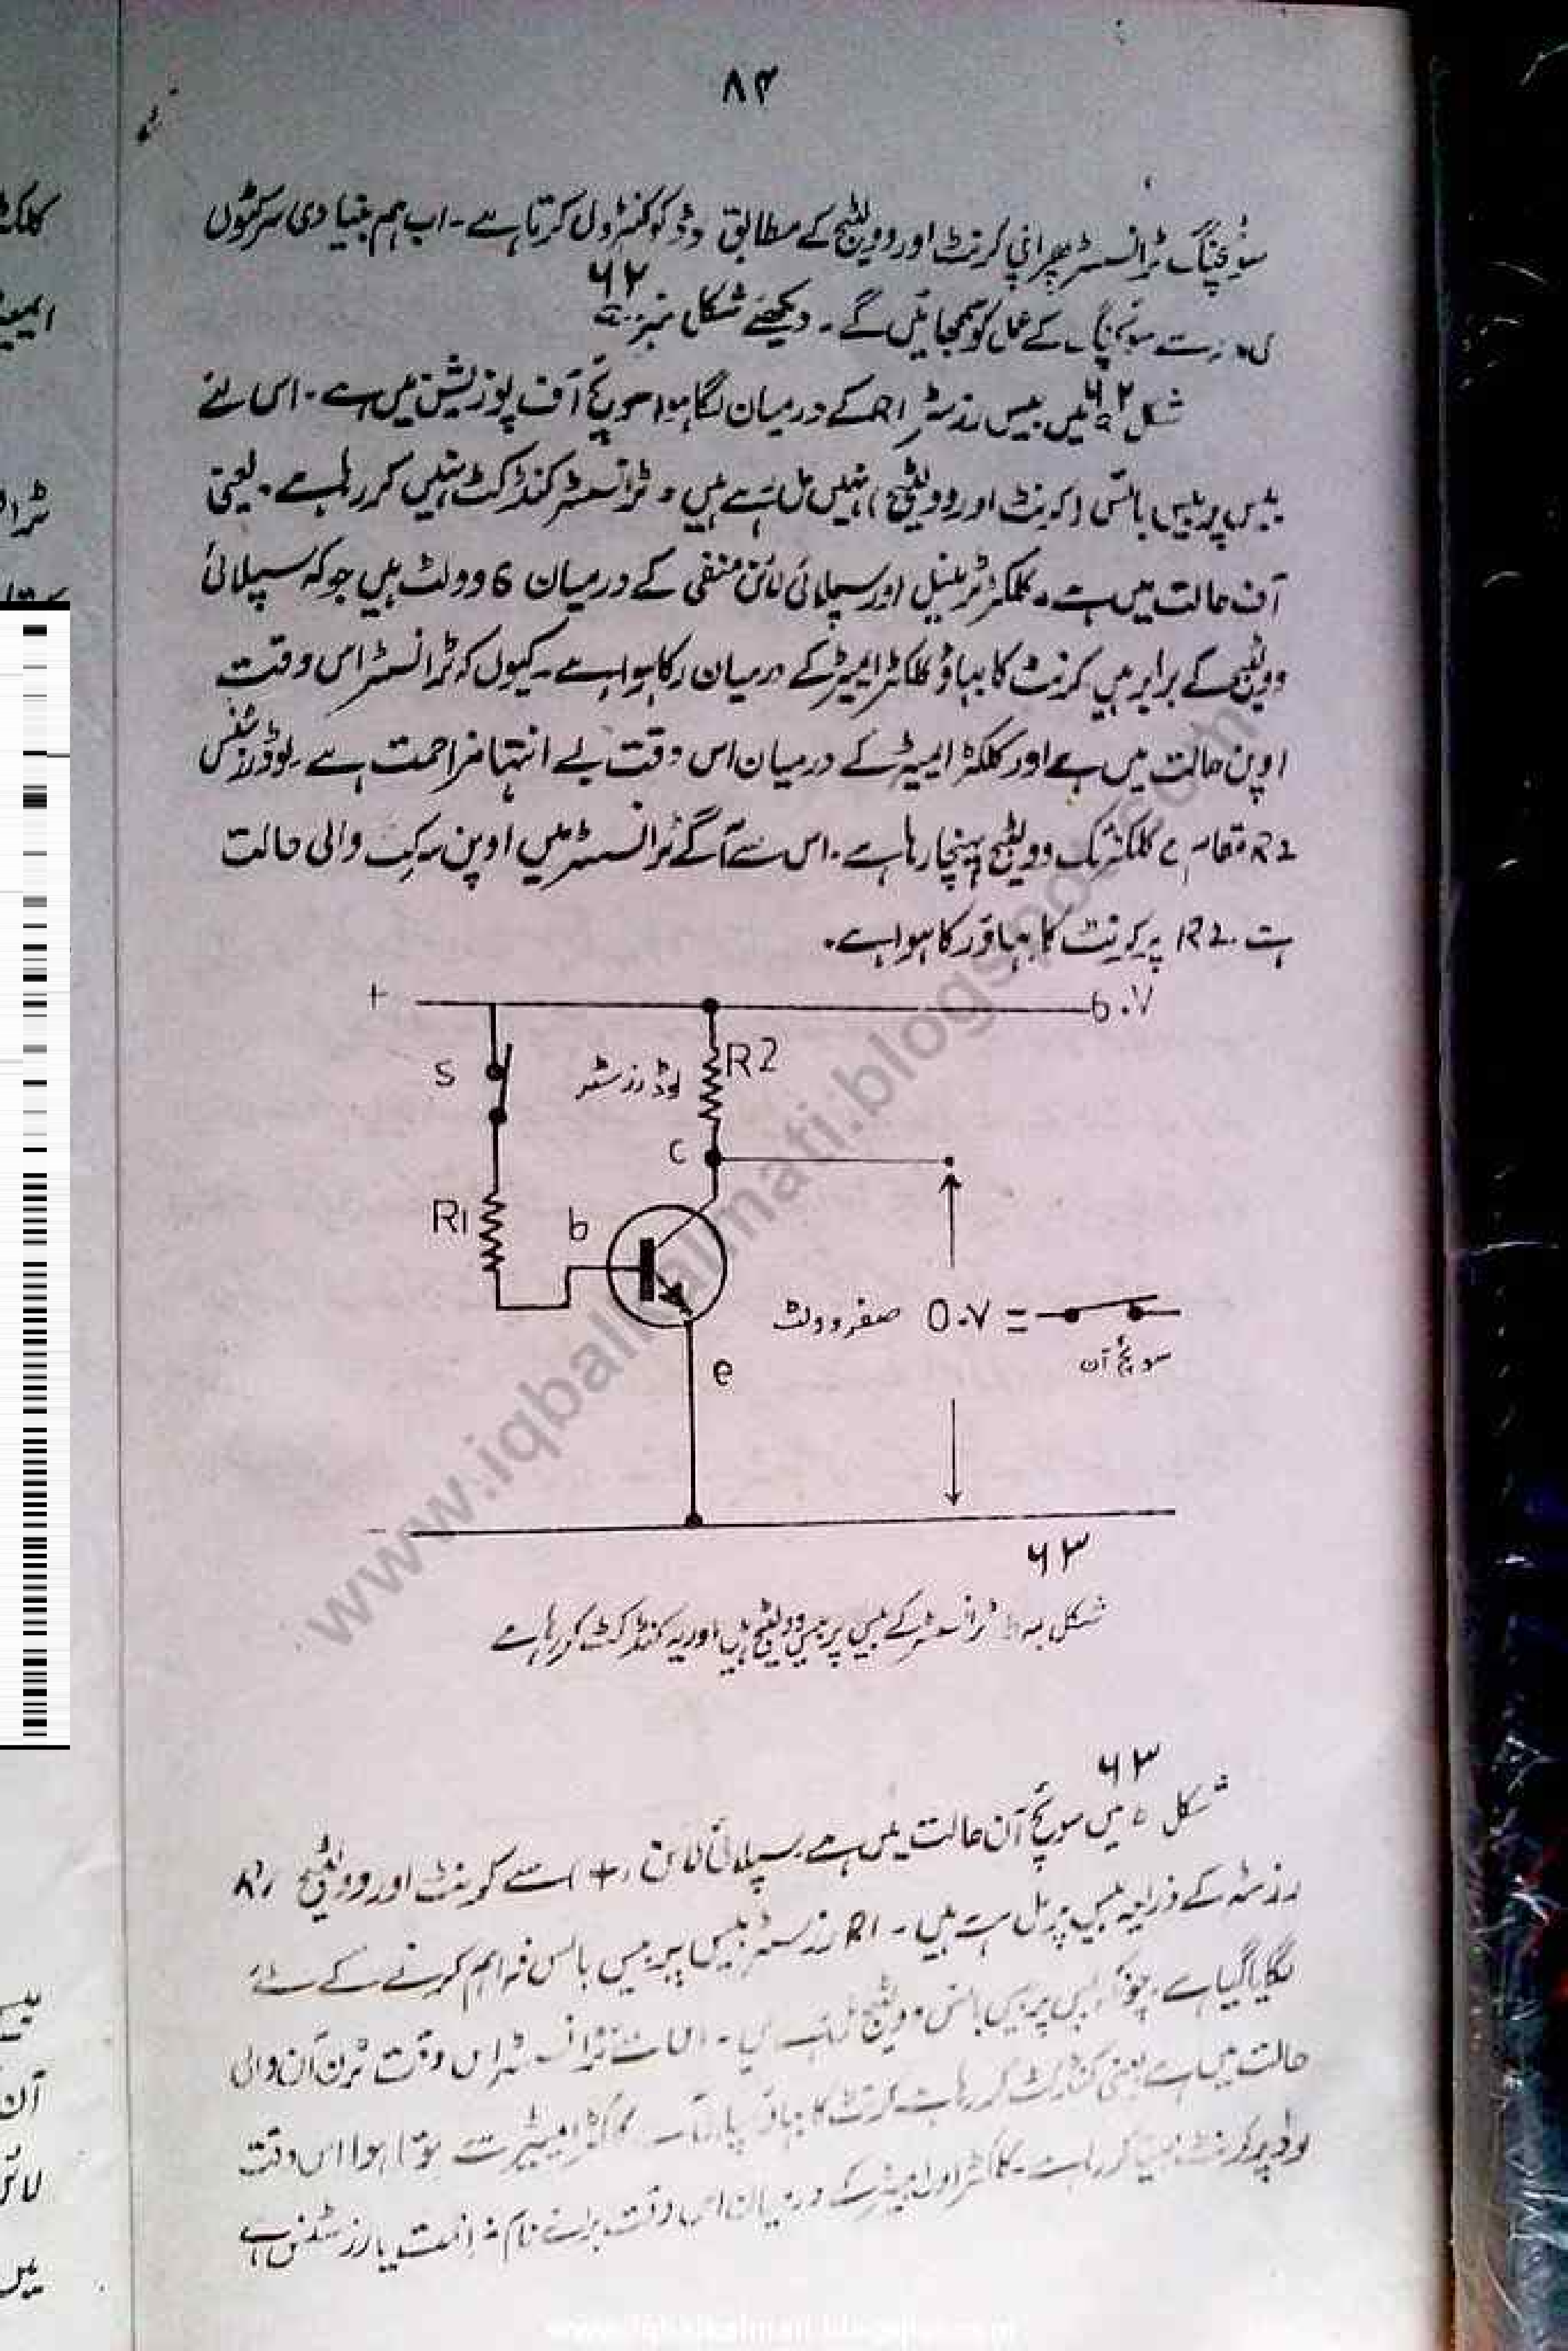 ۸۴
سوئچنگ ٹرانسسٹر پھر اپنی کرنٹ اور وولٹیج کے مطابق لوڈ کو کنٹرول کرتا ہے ۔ اب ہم بنیادی سرکٹوں
کی مدد سے سوئچنگ کے عمل کو سمجھائیں گے ۔ دیکھئے شکل نمبر ۶۲
شکل ۶۲ میں بیس رزسٹر اور کے درمیان لگا ہوا سوئچ آف پوزیشن میں ہے ۔ اس لئے
بیس پر بیس بائس (کرنٹ اور وولٹیج) نہیں مل رہے ہیں ۔ ٹرانسسٹر کنڈکٹ نہیں کر رہا ہے ۔ یعنی
آف حالت میں ہے ۔ کلکٹر ٹرمینل اور سپلائی لائن منفی کے درمیان 6 وولٹ ہیں جو کہ سپلائی
وولٹیج کے برابر ہیں کرنٹ کا بہاؤ کلکٹر ایمیٹر کے درمیان رکا ہوا ہے ۔ کیوں کہ ٹرانسسٹر اس وقت
اوپن حالت میں ہے اور کلکٹر ایمیٹر کے درمیان اس وقت بے انتہا مزاحمت ہے ۔ لوڈ رزسٹنس
R2 مقام c کلکٹر تک وولٹیج پہنچا رہا ہے ۔ اس سے آگے ٹرانسسٹر میں اوپن سرکٹ والی حالت
ہے ۔ R2 پر کرنٹ کا بہاؤ رکا ہوا ہے ۔
+ 6.V
S لوڈ رزسٹر R2
C
R1 b
صفر وولٹ 0.V =
سوئچ آن
e
-
۶۳
شکل ٹرانسسٹر کے بیس پر بیس وولٹیج ہیں اور یہ کنڈکٹ کر رہا ہے
۶۳
شکل میں سوئچ آن حالت میں ہے ۔ سپلائی لائن (+) سے کرنٹ اور وولٹیج R1
رزسٹر کے ذریعہ بیس پر مل رہے ہیں ۔ R1 رزسٹر بیس پر بیس بائس فراہم کرنے کے لئے
لگایا گیا ہے ۔ بیس پر بیس بائس وولٹیج ٹرانسسٹر اس وقت ٹرن آن والی
حالت میں ہے یعنی کنڈکٹ کر رہا ہے کرنٹ کا بہاؤ کلکٹر ایمیٹر سے ہوتا ہوا اس وقت
لوڈ پر کرنٹ مہیا کر رہا ہے ۔ کلکٹر اور ایمیٹر کے درمیان اس وقت برائے نام مزاحمت یا رزسٹنس ہے
www.iqbalkalmati.blogspot.com